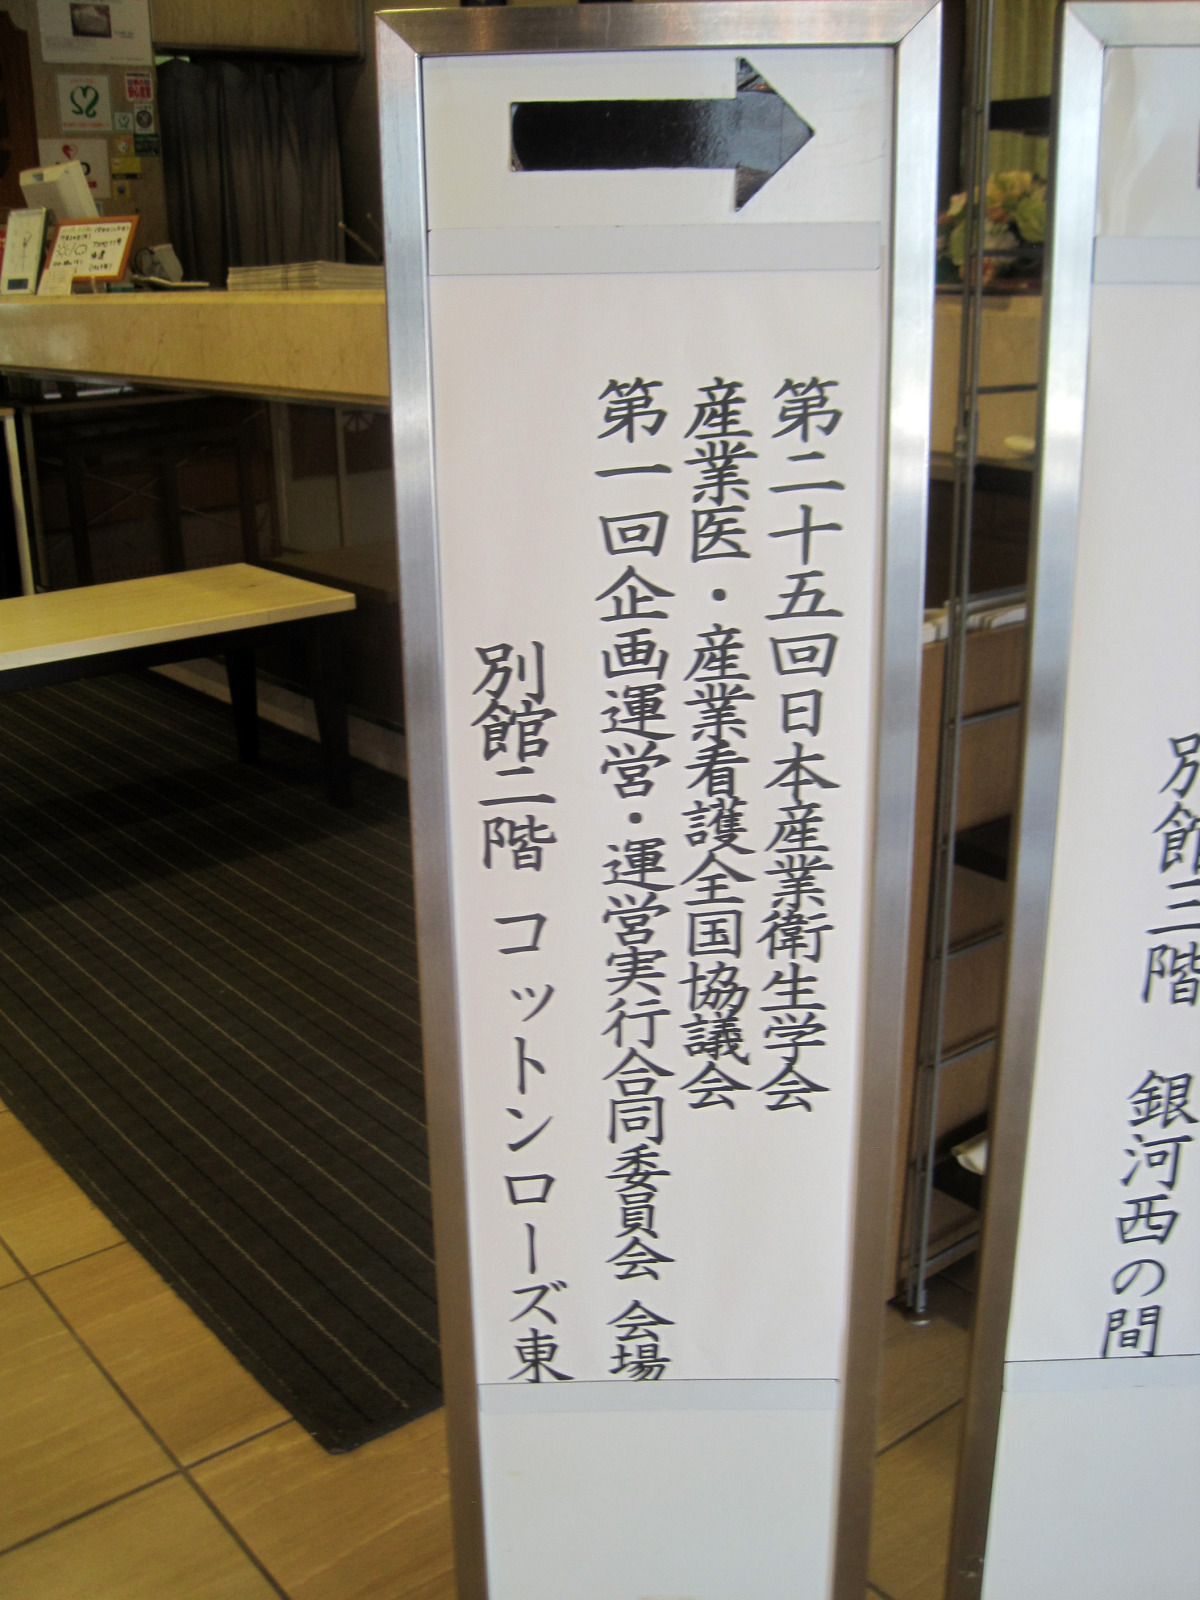 第二十五回日本産業衛生学会
産業医・産業看護全国協議会
第一回企画運営・運営実行合同委員会 会場
別館二階 コットンローズ東
別館三階 銀河西の間